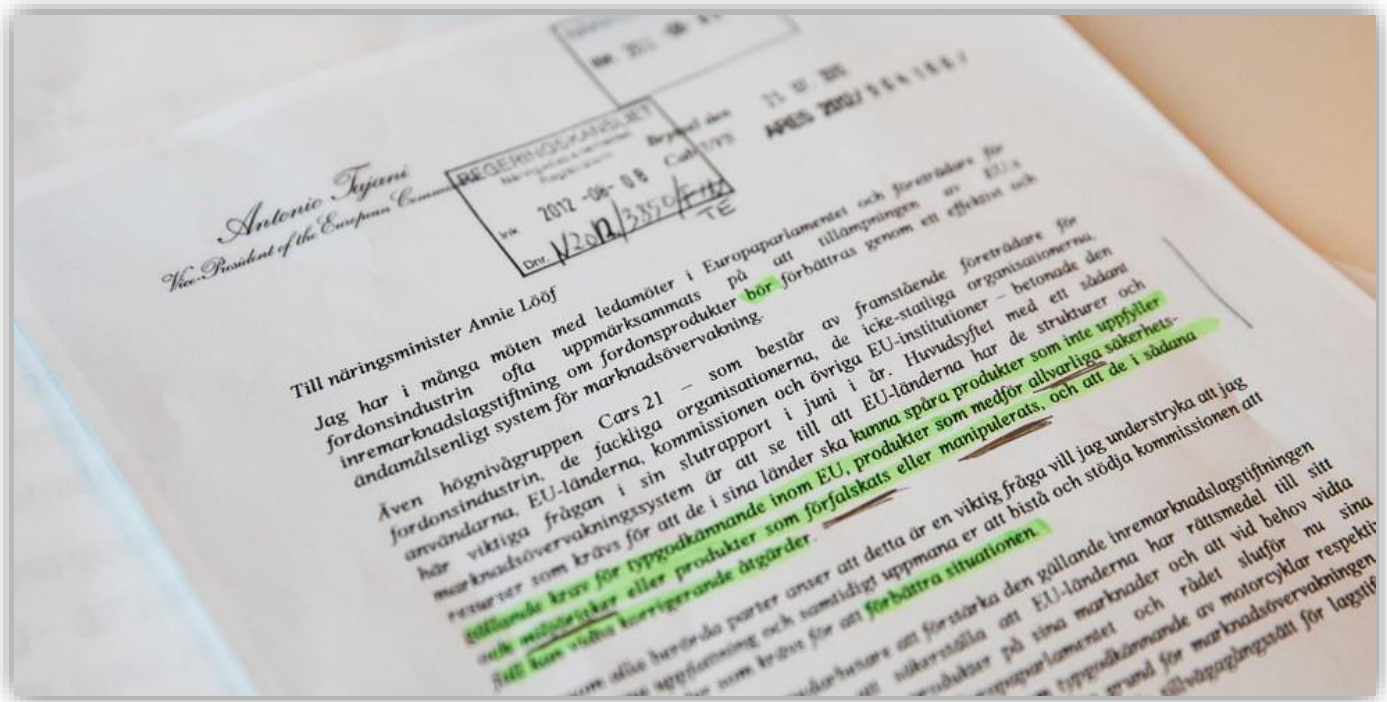 25 07. 2012
ARES 2012/
REGERINGSKANSLIET
Näringsdepartementet
Registrator
Ink 2012 -08- 08
Dnr. N2012/3850/
TE
Bryssel den
Antonio Tajani
Vice-President of the European
Till näringsminister Annie Lööf
Jag har i många möten med ledamöter i Europaparlamentet och företrädare för
fordonsindustrin ofta uppmärksammats på att tillämpningen av EU:s
inremarknadslagstiftning om fordonsprodukter bör förbättras genom ett effektivt och
ändamålsenligt system för marknadsövervakning.
Även högnivågruppen Cars 21 – som består av framstående företrädare för
fordonsindustrin, de fackliga organisationerna, de icke-statliga organisationerna,
användarna, EU-länderna, kommissionen och övriga EU-institutioner – betonade den
här viktiga frågan i sin slutrapport i juni i år. Huvudsyftet med ett sådant
marknadsövervakningssystem är att se till att EU-länderna har de strukturer och
resurser som krävs för att de i sina länder ska kunna spåra produkter som inte uppfyller
gällande krav för typgodkännande inom EU, produkter som medför allvarliga säkerhets-
och miljörisker eller produkter som förfalskats eller manipulerats, och att de i sådana
fall kan vidta korrigerande åtgärder.
som alla berörda parter anser att detta är en viktig fråga vill jag understryka att jag
uppfattning och samtidigt uppmana er att bistå och stödja kommissionen att
som krävs för att förbättra situationen.
att förstärka den gällande inremarknadslagstiftningen
att säkerställa att EU-länderna har rättsmedel till sitt
produkter på sina marknader och att vid behov vidta
och rådet slutför nu sina
typgodkännande av motorcyklar
grund för marknadsövervakningen
tillvägagångssätt för